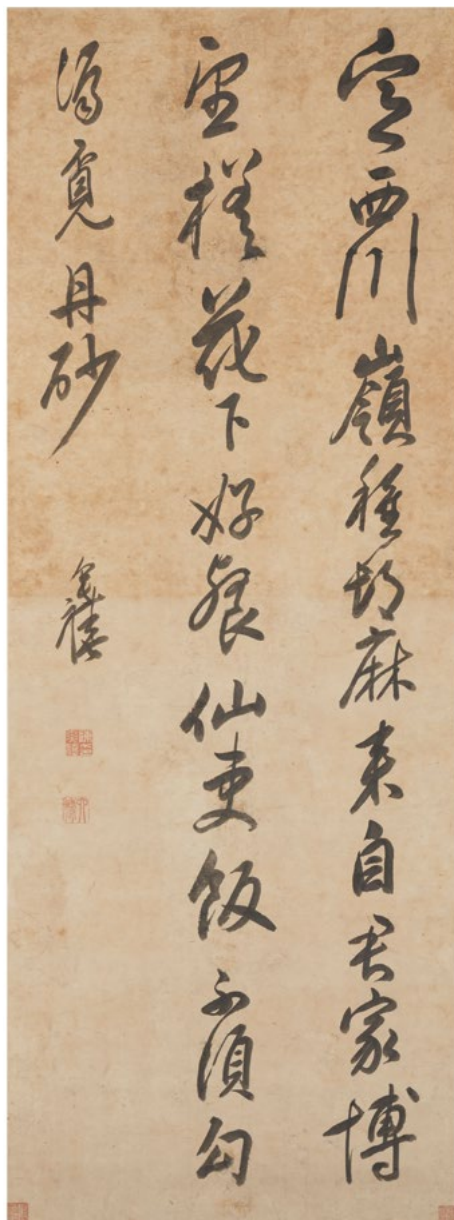 西川嶺種胡麻来自君家博
望槎花下好餐仙吏飯不須勾
漏覓丹砂